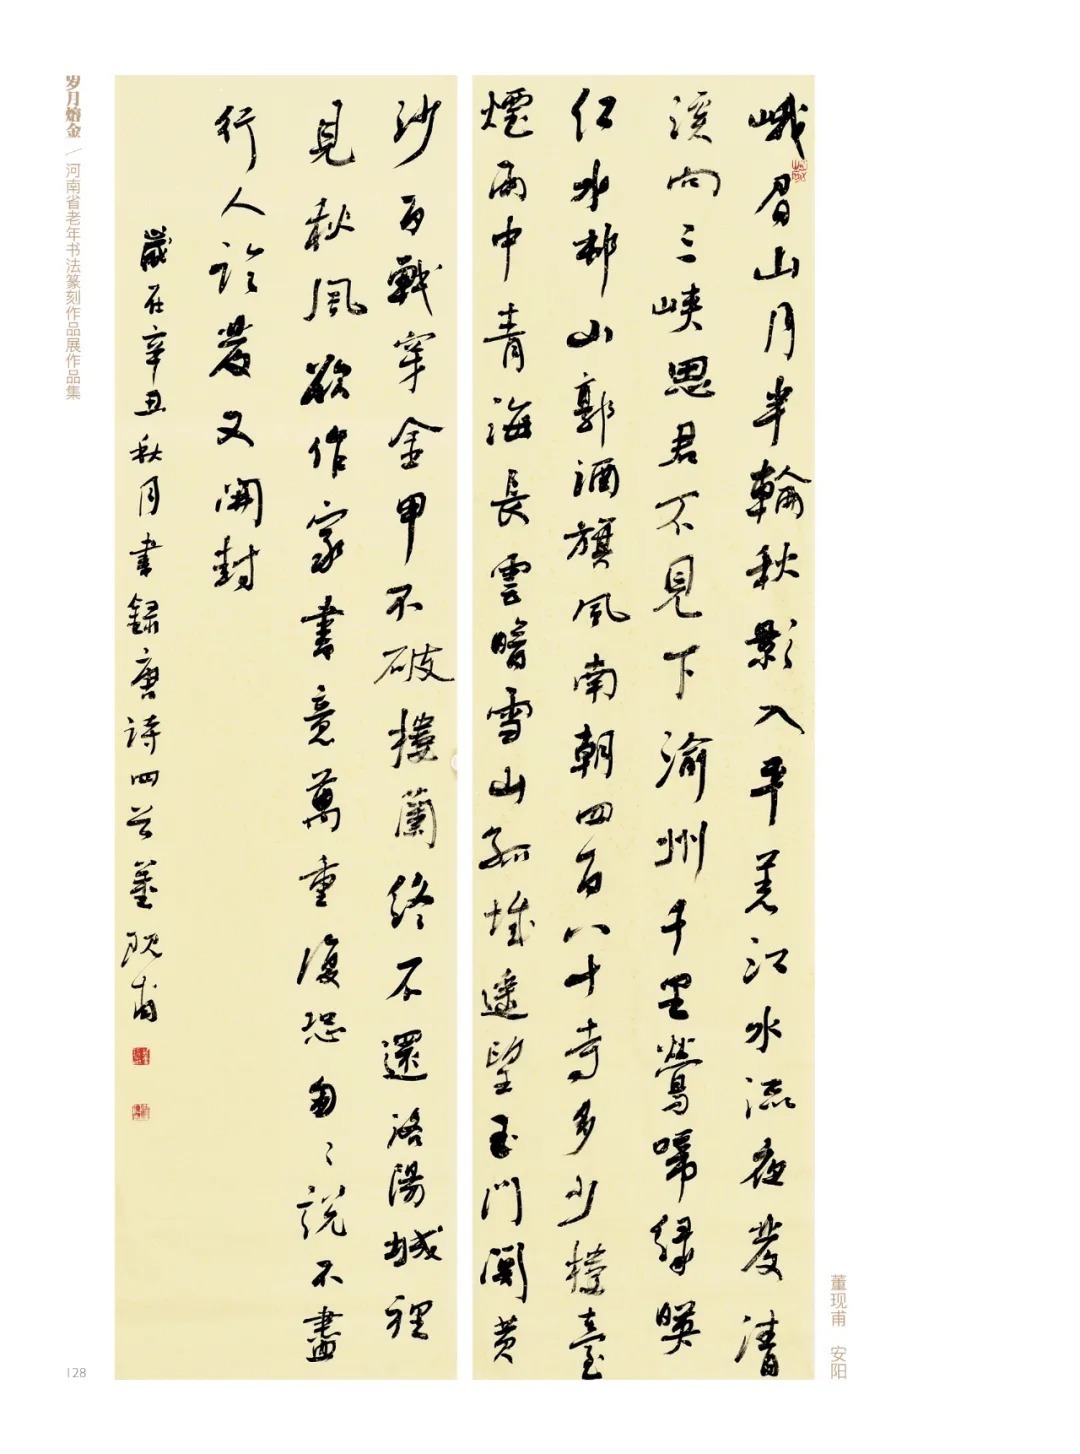 峨眉山月半輪秋影入平羌江水流夜發清
溪向三峽思君不見下渝州千里鶯啼緑暎
紅水邨山郭酒旗風南朝四百八十寺多少樓臺
煙雨中青海長雲暗雪山孤城遥望玉門關黄
沙百戰穿金甲不破樓蘭終不還洛陽城裡
見秋風欲作家書意萬重復恐匆〻説不盡
行人臨發又開封
歲在辛丑秋月書録唐詩四首董現甫
董现甫 安阳
岁月熔金 / 河南省老年书法篆刻作品展作品集
128